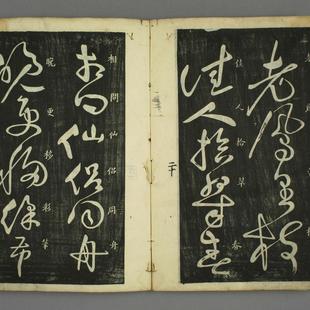 老鳳凰枝
佳人拾翠春
佳人拾翠春
二十
相問仙侶同舟
相問仙侶同舟
晚更移彩筆
晚更移彩筆